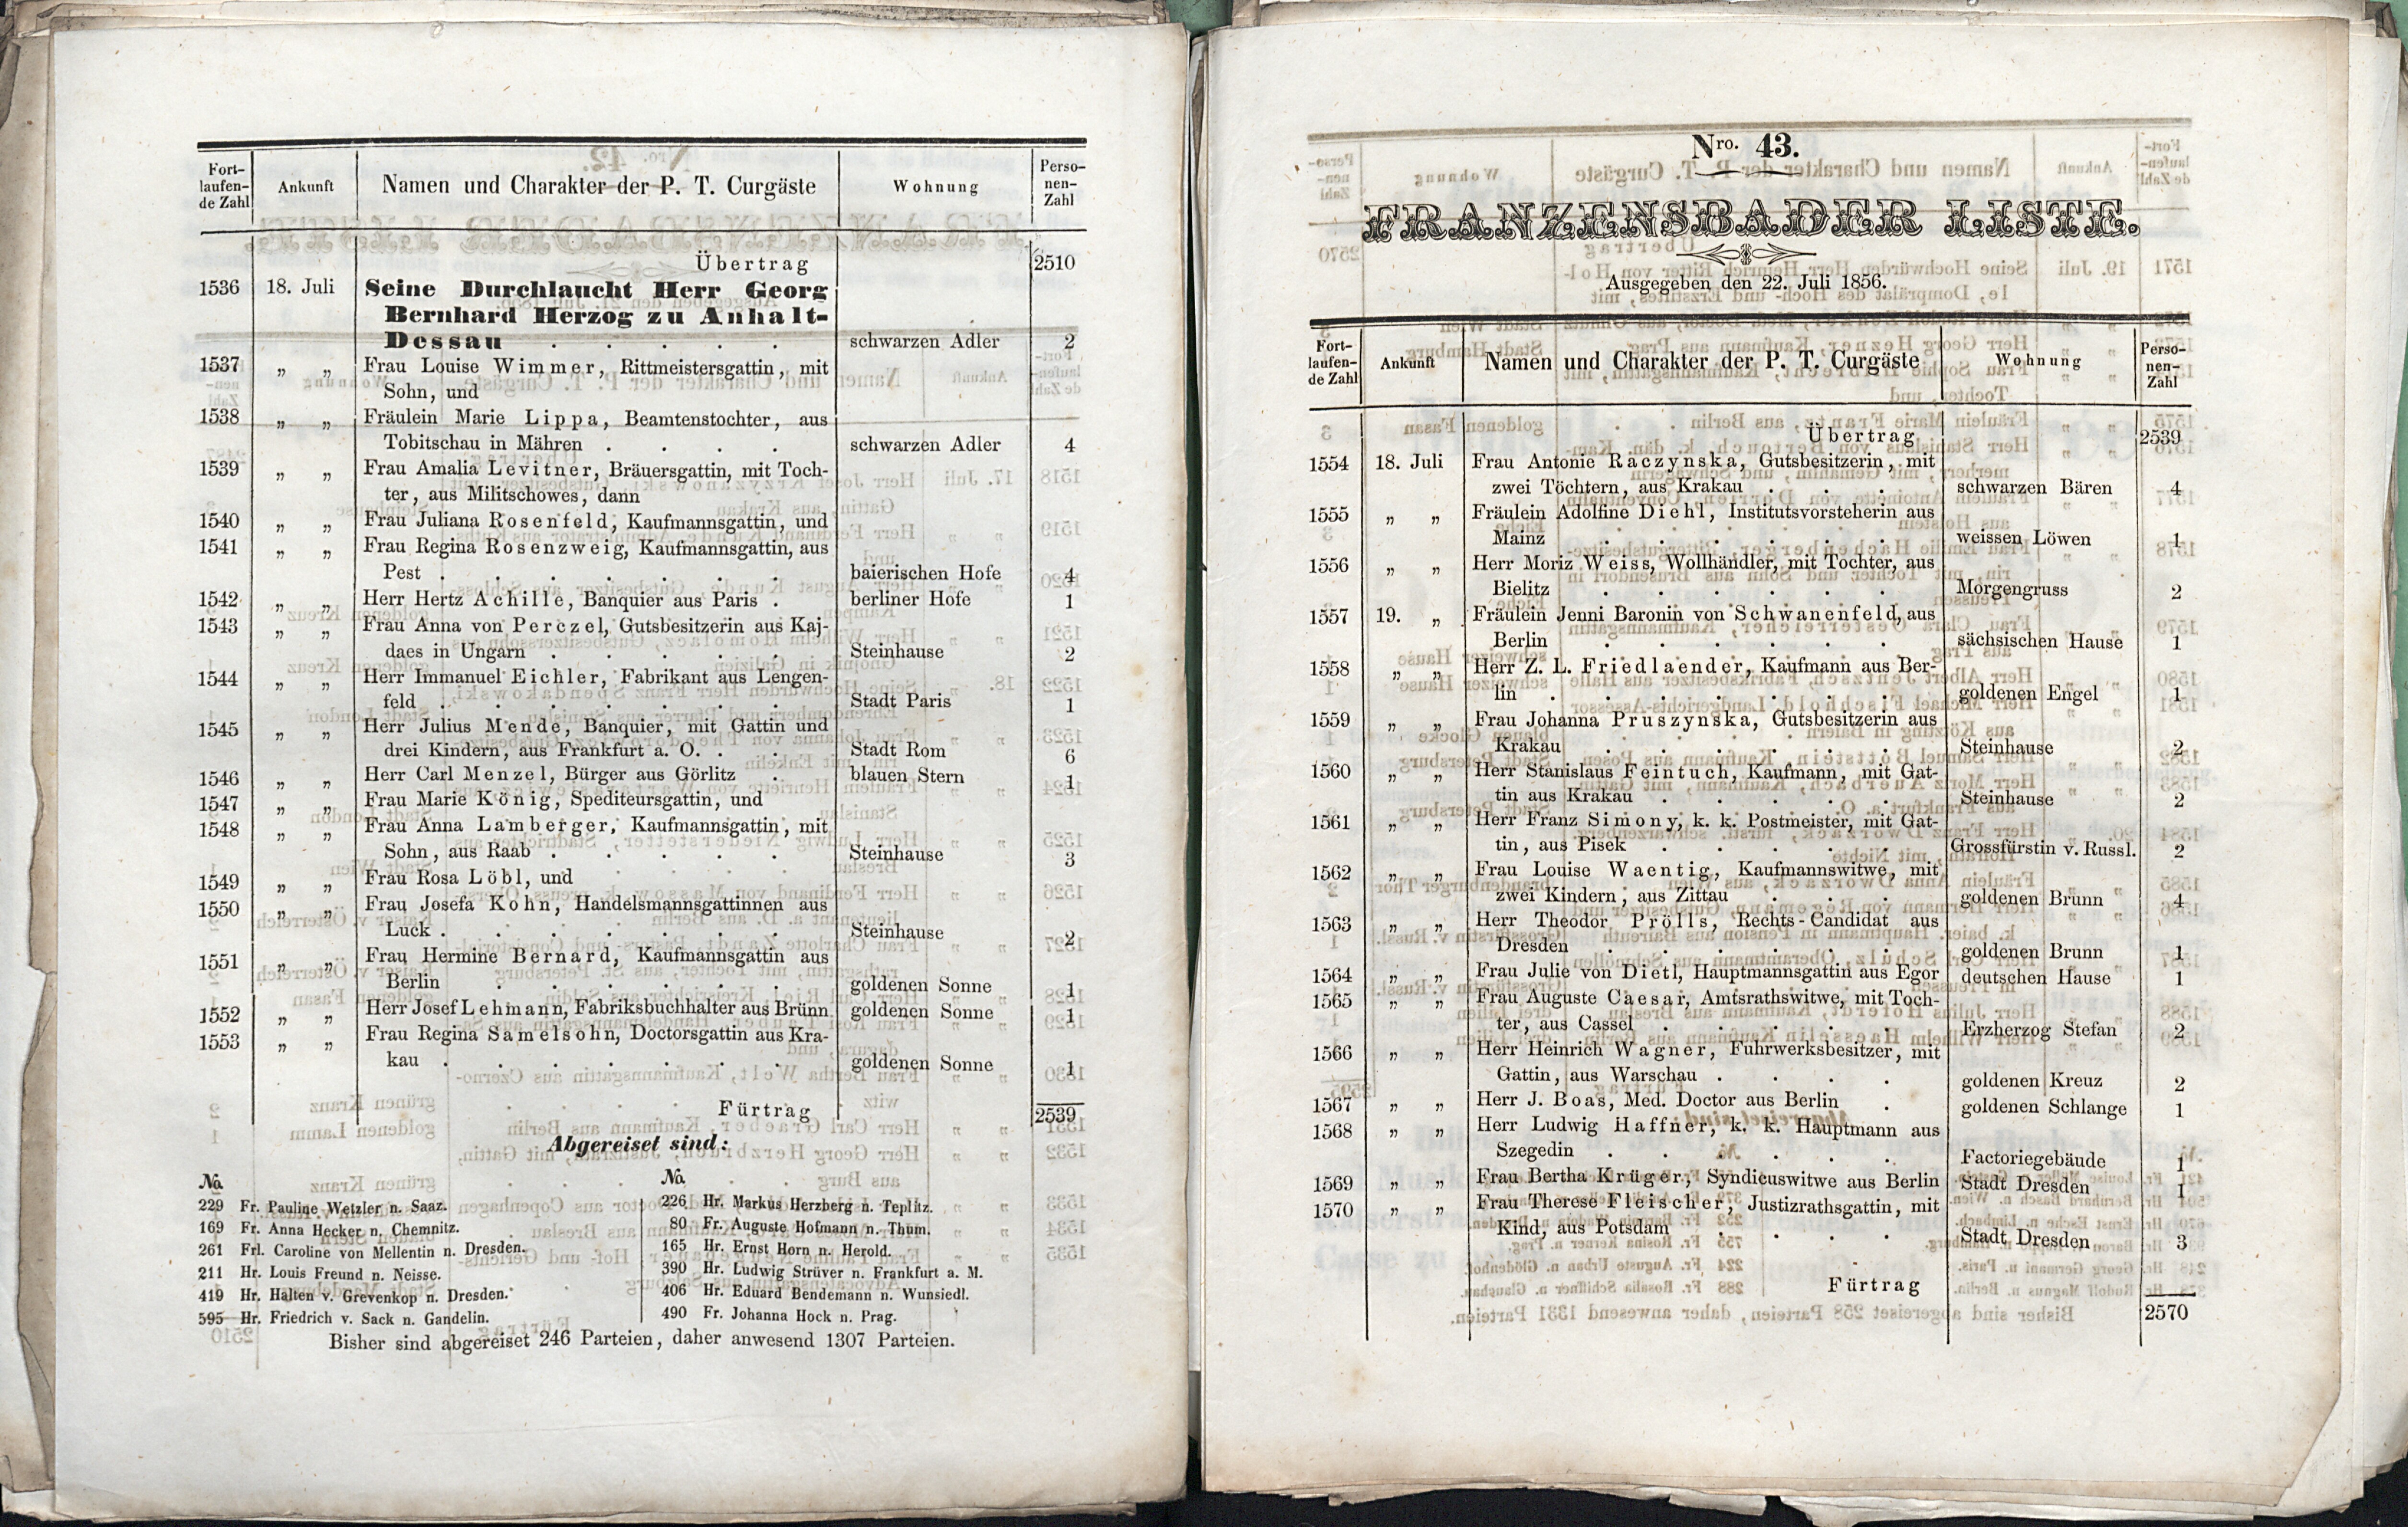 Fort-laufen-de Zahl | Ankunft | Namen und Charakter der P. T. Curgäste | Wohnung | Perso-nen-Zahl
Übertrag 2510
1536 18. Juli Seine Durchlaucht Herr Georg
Bernhard Herzog zu Anhalt-
Dessau . . . . . schwarzen Adler 2
1537 „ „ Frau Louise Wimmer, Rittmeistersgattin, mit
Sohn, und
1538 „ „ Fräulein Marie Lippa, Beamtenstochter, aus
Tobitschau in Mähren . . . . schwarzen Adler 4
1539 „ „ Frau Amalia Levitner, Bräuersgattin, mit Toch-
ter, aus Militschowes, dann
1540 „ „ Frau Juliana Rosenfeld, Kaufmannsgattin, und
1541 „ „ Frau Regina Rosenzweig, Kaufmannsgattin, aus
Pest . . . . . . . baierischen Hofe 4
1542 „ „ Herr Hertz Achille, Banquier aus Paris . berliner Hofe 1
1543 „ „ Frau Anna von Perczel, Gutsbesitzerin aus Kaj-
daes in Ungarn . . . . . Steinhause 2
1544 „ „ Herr Immanuel Eichler, Fabrikant aus Lengen-
feld . . . . . . . Stadt Paris 1
1545 „ „ Herr Julius Mende, Banquier, mit Gattin und
drei Kindern, aus Frankfurt a. O. . . Stadt Rom 6
1546 „ „ Herr Carl Menzel, Bürger aus Görlitz . blauen Stern 1
1547 „ „ Frau Marie König, Spediteursgattin, und
1548 „ „ Frau Anna Lamberger, Kaufmannsgattin, mit
Sohn, aus Raab . . . . . Steinhause 3
1549 „ „ Frau Rosa Löbl, und
1550 „ „ Frau Josefa Kohn, Handelsmannsgattinnen aus
Luck . . . . . . . Steinhause 2
1551 „ „ Frau Hermine Bernard, Kaufmannsgattin aus
Berlin . . . . . . goldenen Sonne 1
1552 „ „ Herr Josef Lehmann, Fabriksbuchhalter aus Brünn goldenen Sonne 1
1553 „ „ Frau Regina Samelsohn, Doctorsgattin aus Kra-
kau . . . . . . . goldenen Sonne 1
Fürtrag 2539
Abgereiset sind:
No.
229 Fr. Pauline Wetzler n. Saaz.
169 Fr. Anna Hecker n. Chemnitz.
261 Frl. Caroline von Mellentin n. Dresden.
211 Hr. Louis Freund n. Neisse.
419 Hr. Halten v. Grevenkop n. Dresden.
595 Hr. Friedrich v. Sack n. Gandelin.
No.
226 Hr. Markus Herzberg n. Teplitz.
80 Fr. Auguste Hofmann n. Thum.
165 Hr. Ernst Horn n. Herold.
390 Hr. Ludwig Strüver n. Frankfurt a. M.
406 Hr. Eduard Bendemann n. Wunsiedl.
490 Fr. Johanna Hock n. Prag.
Bisher sind abgereiset 246 Parteien, daher anwesend 1307 Parteien.
Nro. 43.
FRANZENSBADER LISTE.
Ausgegeben den 22. Juli 1856.
Fort-laufen-de Zahl | Ankunft | Namen und Charakter der P. T. Curgäste | Wohnung | Perso-nen-Zahl
Übertrag 2539
1554 18. Juli Frau Antonie Raczynska, Gutsbesitzerin, mit
zwei Töchtern, aus Krakau . . . schwarzen Bären 4
1555 „ „ Fräulein Adolfine Diehl, Institutsvorsteherin aus
Mainz . . . . . . weissen Löwen 1
1556 „ „ Herr Moriz Weiss, Wollhändler, mit Tochter, aus
Bielitz . . . . . . Morgengruss 2
1557 19. „ Fräulein Jenni Baronin von Schwanenfeld, aus
Berlin . . . . . . sächsischen Hause 1
1558 „ „ Herr Z. L. Friedlaender, Kaufmann aus Ber-
lin . . . . . . . goldenen Engel 1
1559 „ „ Frau Johanna Pruszynska, Gutsbesitzerin aus
Krakau . . . . . . Steinhause 2
1560 „ „ Herr Stanislaus Feintuch, Kaufmann, mit Gat-
tin aus Krakau . . . . . Steinhause 2
1561 „ „ Herr Franz Simony, k. k. Postmeister, mit Gat-
tin, aus Pisek . . . . . Grossfürstin v. Russl. 2
1562 „ „ Frau Louise Waentig, Kaufmannswitwe, mit
zwei Kindern, aus Zittau . . . goldenen Brunn 4
1563 „ „ Herr Theodor Prölls, Rechts-Candidat aus
Dresden . . . . . . goldenen Brunn 1
1564 „ „ Frau Julie von Dietl, Hauptmannsgattin aus Egor deutschen Hause 1
1565 „ „ Frau Auguste Caesar, Amtsrathswitwe, mit Toch-
ter, aus Cassel . . . . . Erzherzog Stefan 2
1566 „ „ Herr Heinrich Wagner, Fuhrwerksbesitzer, mit
Gattin, aus Warschau . . . . goldenen Kreuz 2
1567 „ „ Herr J. Boas, Med. Doctor aus Berlin . goldenen Schlange 1
1568 „ „ Herr Ludwig Haffner, k. k. Hauptmann aus
Szegedin . . . . . . Factoriegebäude 1
1569 „ „ Frau Bertha Krüger, Syndicuswitwe aus Berlin Stadt Dresden 1
1570 „ „ Frau Therese Fleischer, Justizrathsgattin, mit
Kind, aus Potsdam . . . . Stadt Dresden 3
Fürtrag 2570